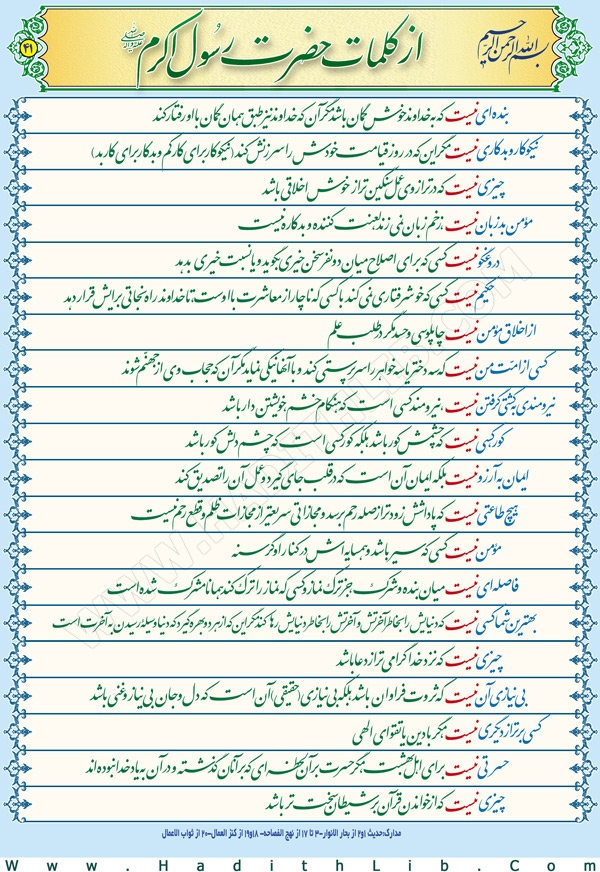 بسم الله الرحمن الرحیم
از کلمات حضرت رسول اکرم
۴۱
بنده‌ای نیست که به خداوند خوش گمان باشد مگر آن که خداوند نیز طبق همان گمان با او رفتار کند
نیکوکار و بدکاری نیست مگر این که در روز قیامت خودش را سرزنش کند (نیکوکار برای کار کم و بدکار برای کار بد)
چیزی نیست که در ترازوی عمل سنگین تر از خوش اخلاقی باشد
مؤمن بدزبان نیست، زخم زبان نمی زند لعنت کننده و بدکاره نیست
دروغگو نیست کسی که برای اصلاح میان دو نفر سخن خیری بگوید و یا نسبت خیری بدهد
حکیم نیست کسی که خوشرفتاری نمی کند با کسی که ناچار از معاشرت با اوست تا خداوند راه نجاتی برایش قرار دهد
از اخلاق مؤمن نیست چاپلوسی و حسد مگر در طلب علم
کسی از امت من نیست که سه دختر یا سه خواهر را سرپرستی کند و با آنها نیکی نماید مگر آن که حجاب وی از جهنم شوند
نیرومندی به کشتی گرفتن نیست، نیرومند کسی است که هنگام خشم خویشتن دار باشد
کور کسی نیست که چشمش کور باشد بلکه کور کسی است که چشم دلش کور باشد
ایمان به آرزو نیست بلکه ایمان آن است که در قلب جای گیرد و عمل آن را تصدیق کند
هیچ طاعتی نیست که پاداش زودتر از صله رحم برسد و مجازاتی سریعتر از مجازات ظلم و قطع رحم نیست
مؤمن نیست کسی که سیر باشد و همسایه اش در کنار او گرسنه
فاصله‌ای نیست میان بنده و شرک جز ترک نماز و کسی که نماز را ترک کند همانا مشرک شده است
بهترین شما کسی نیست که دنیایش را بخاطر آخرتش و آخرتش را بخاطر دنیایش رها کند مگر این که از هر دو بهره گیرد که دنیا وسیله رسیدن به آخرت است
چیزی نیست که نزد خدا گرامی تر از دعا باشد
بی نیازی آن نیست که ثروت فراوان باشد بلکه بی نیازی (حقیقی) آن است که دل و جان بی نیاز و غنی باشد
کسی برتر از دیگری نیست مگر با دین یا تقوای الهی
حسرتی نیست برای اهل بهشت مگر حسرت بر آن لحظه‌ای که بر آنان گذشته و در آن به یاد خدا نبوده اند
چیزی نیست که از خواندن قرآن بر شیطان سخت تر باشد
مدارک: حدیث ۱و۲ از بحار الانوار-۳ تا ۱۷ از نهج الفصاحه- ۱۸و۱۹ از کنز العمال-۲۰ از ثواب الاعمال
www.HadithLib.Com